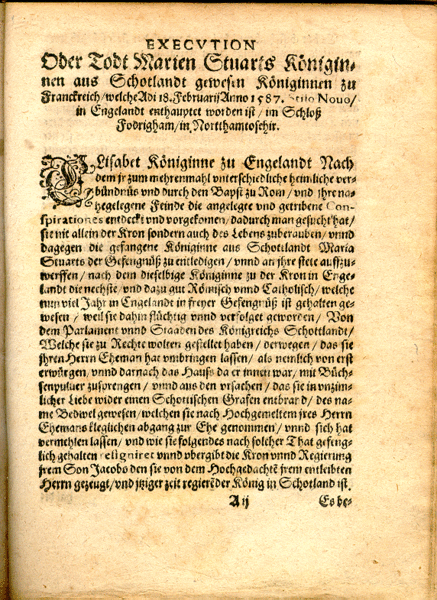 EXECVTION
Oder Todt Marien Stuarts Königin-
nen aus Schotlandt gewesen Königinnen zu
Franckreich/welche Adi 18. Februarij Anno 1587. Stilo Novo/
in Engelandt enthauptet worden ist/im Schloß
Fodrigham/in Northamtoschir.
ELisabet Königinne zu Engelandt Nach
dem jr zum mehrenmahl vnterschiedliche heimliche ver-
bündnüs vnd durch den Bapst zu Rom/vnd jhre na-
tzegelegene Feinde die angelegte vnd getribene Con-
spirationes entdeckt vnd vorgekomen/dadurch man gesucht hat/
sie nit allein der Kron sondern auch des Lebens zuberauben/vnnd
dagegen die gefangene Königinne aus Schotlandt Maria
Stuarts der Gefengnüß zu entledigen/vnnd an jhre stete auffzu-
werffen/nach dem dieselbige Königinne zu der Kron in Enge-
landt die nechste/vnd dazu gut Römisch vnnd Catholisch/welche
nun viel Jahr in Engelandt in freyer Gefengnüß ist gehalten ge-
wesen/weil sie dahin flüchtig vnnd verfolget geworden/Von
dem Parlament vnnd Staaden des Königreichs Schottlandt/
Welche sie zu Rechte wolten gestellet haben/derwegen/das sie
jhren Herrn Eheman hat vmbringen lassen/als nemlich von erst
erwürgen/vnnd darnach das Hauß da er innen war/mit Büch-
senpuluer zusprengen/vnnd aus den vrsachen/das sie in vnzim-
licher Liebe wider einen Schottischen Grafen entbrand/des na-
me Bedwel gewesen/welchen sie nach Hochgemeltem jres Herrn
Ehemans kleglichen abgang zur Ehe genommen/vnnd sich hat
vermehlen lassen/vnd wie sie folgendes nach solcher That gefeng-
lich gehalten resigniret vnnd vbergibt die Kron vnnd Regierung
jrem Son Jacobo den sie von dem Hochgedachtē jrem entleibten
Herrn gezeugt/vnd jtziger zeit regierēder König in Schotland ist.
A ij Es be-